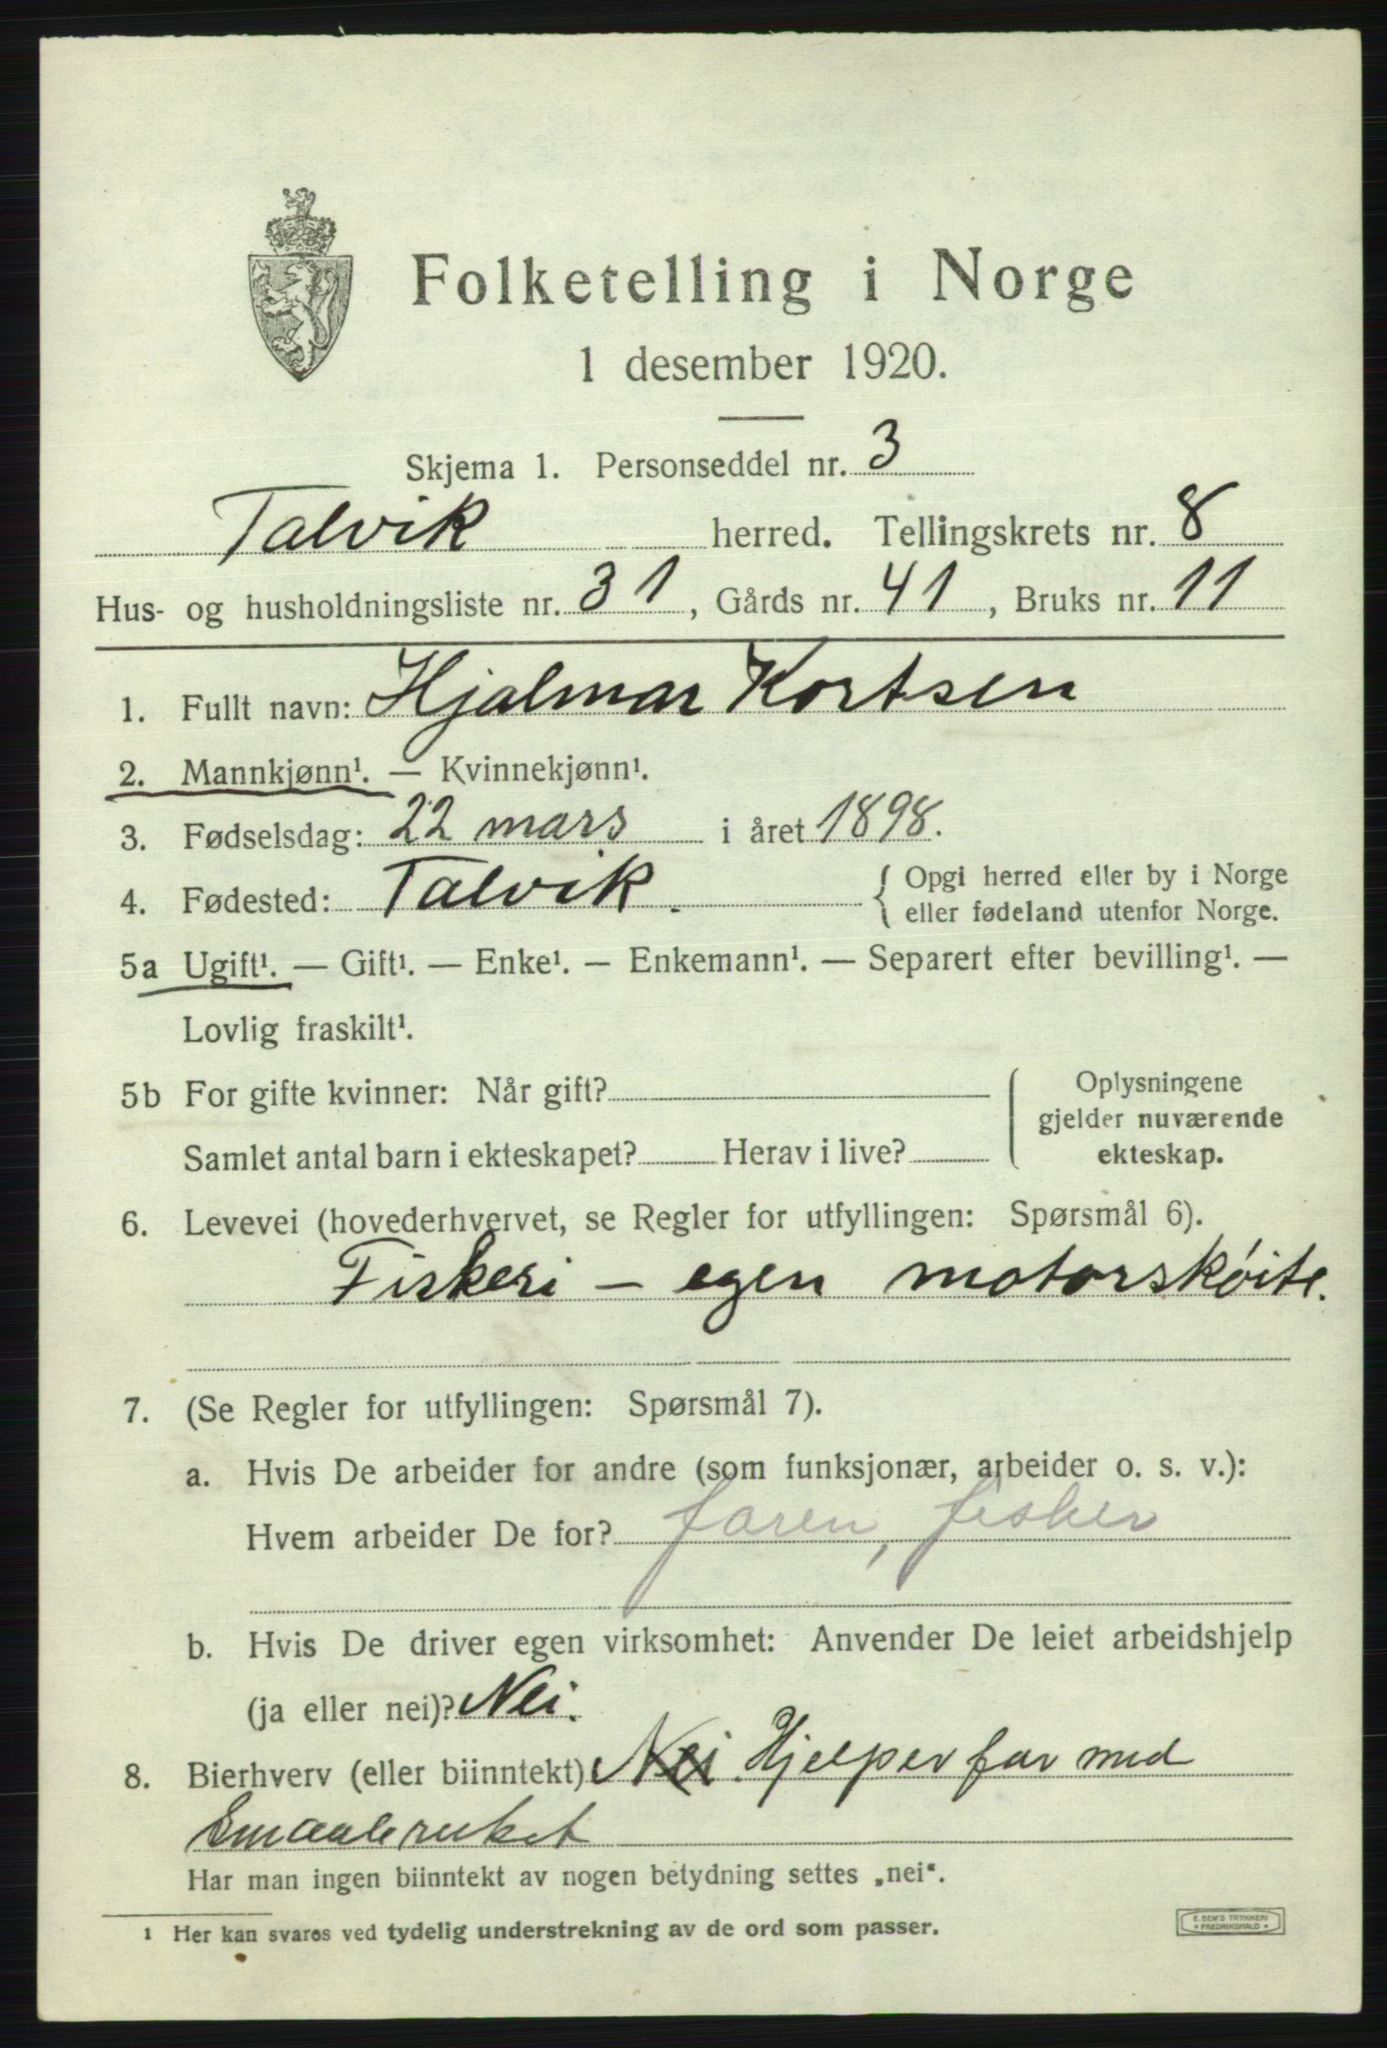 Folketelling i Norge
1 desember 1920.
Skjema 1. Personseddel nr. 3
Talvik herred. Tellingskrets nr. 8
Hus- og husholdningsliste nr. 31, Gårds nr. 41, Bruks nr. 11
1. Fullt navn: Hjalmar Kortsen
2. Mannkjønn¹. — Kvinnekjønn¹.
3. Fødselsdag: 22 mars i året 1898.
4. Fødested: Talvik. { Opgi herred eller by i Norge
eller fødeland utenfor Norge.
5a Ugift¹. — Gift¹. — Enke¹. — Enkemann¹. — Separert efter bevilling¹. —
Lovlig fraskilt¹.
5b For gifte kvinner: Når gift? ( Oplysningene
gjelder nuværende
Samlet antal barn i ekteskapet? Herav i live? ekteskap.
6. Levevei (hovederhvervet, se Regler for utfyllingen: Spørsmål 6).
Fiskeri – egen motorskóite.
7. (Se Regler for utfyllingen: Spørsmål 7).
a. Hvis De arbeider for andre (som funksjonær, arbeider o. s. v.):
Hvem arbeider De for? faren, fisker
b. Hvis De driver egen virksomhet: Anvender De leiet arbeidshjelp
(ja eller nei)? Nei.
8. Bierhverv (eller biinntekt) Nei. Hjelper far med
Smaabruket
Har man ingen biinntekt av nogen betydning settes „nei“.
1 Her kan svares ved tydelig understrekning av de ord som passer.
E. SEM'S TRYKKERI
FREDRIKSHALD